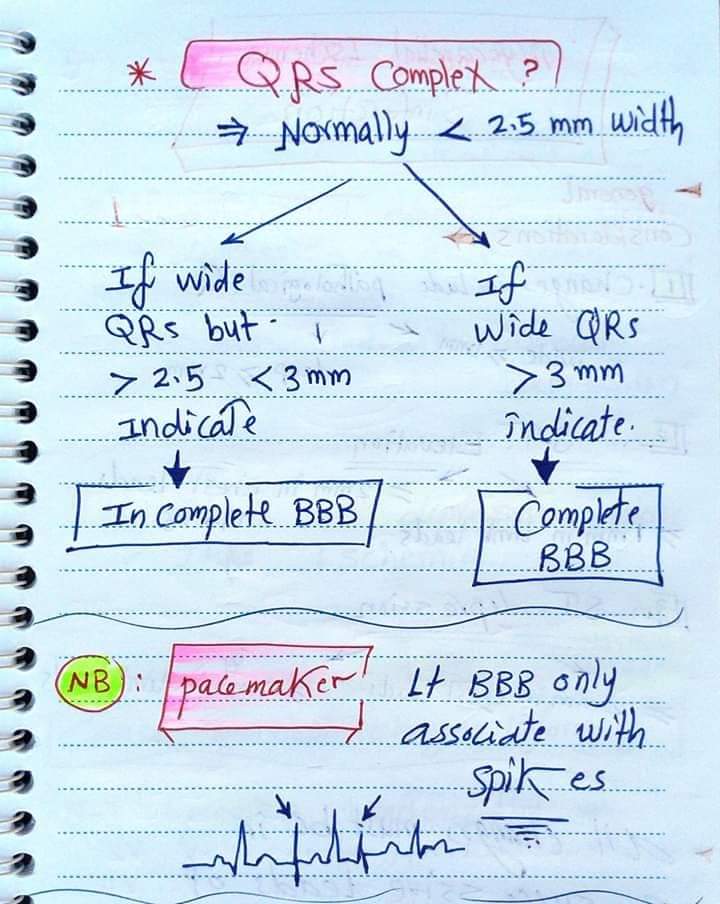 * QRS Complex ?
⇒ Normally < 2.5 mm width
If wide
QRS but
> 2.5 < 3 mm
Indicate
In complete BBB
If
Wide QRS
> 3 mm
indicate.
Complete
BBB
NB : pacemaker
Lt BBB only
associate with
spikes